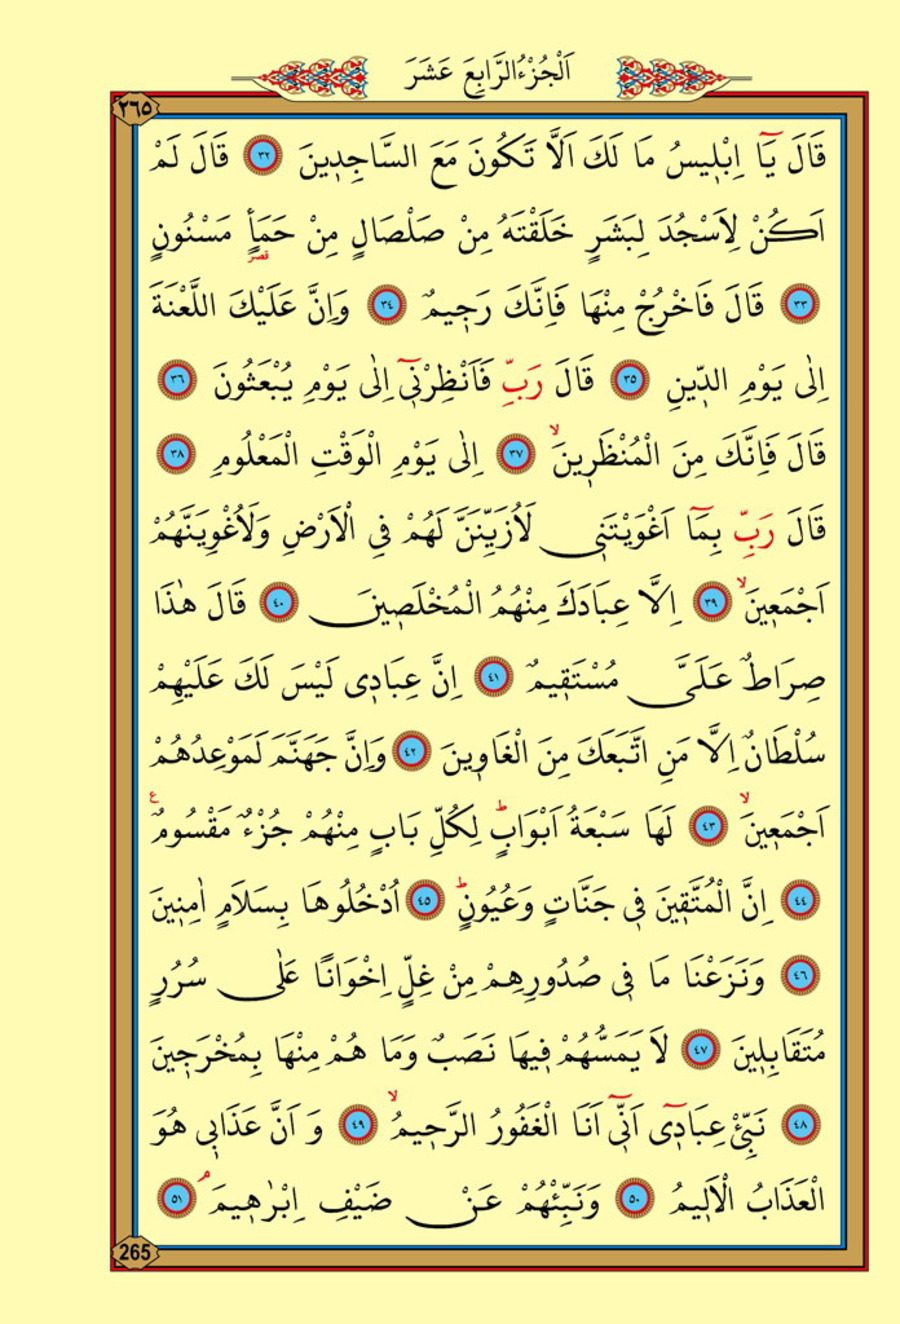 اَلْجُزْءُ الرَّابِعَ عَشَرَ
٢٦٥
قَالَ يَٓا اِبْل۪يسُ مَا لَكَ اَلَّا تَكُونَ مَعَ السَّاجِد۪ينَ ٣٢ قَالَ لَمْ
اَكُنْ لِاَسْجُدَ لِبَشَرٍ خَلَقْتَهُ مِنْ صَلْصَالٍ مِنْ حَمَأٍ مَسْنُونٍ
قصر
٣٣ قَالَ فَاخْرُجْ مِنْهَا فَاِنَّكَ رَج۪يمٌ ٣٤ وَاِنَّ عَلَيْكَ اللَّعْنَةَ
اِلٰى يَوْمِ الدّ۪ينِ ٣٥ قَالَ رَبِّ فَاَنْظِرْن۪ٓي اِلٰى يَوْمِ يُبْعَثُونَ ٣٦
قَالَ فَاِنَّكَ مِنَ الْمُنْظَر۪ينَۙ ٣٧ اِلٰى يَوْمِ الْوَقْتِ الْمَعْلُومِ ٣٨
قَالَ رَبِّ بِمَٓا اَغْوَيْتَن۪ي لَاُزَيِّنَنَّ لَهُمْ فِي الْاَرْضِ وَلَاُغْوِيَنَّهُمْ
اَجْمَع۪ينَۙ ٣٩ اِلَّا عِبَادَكَ مِنْهُمُ الْمُخْلَص۪ينَ ٤٠ قَالَ هٰذَا
صِرَاطٌ عَلَيَّ مُسْتَق۪يمٌ ٤١ اِنَّ عِبَاد۪ي لَيْسَ لَكَ عَلَيْهِمْ
سُلْطَانٌ اِلَّا مَنِ اتَّبَعَكَ مِنَ الْغَاو۪ينَ ٤٢ وَاِنَّ جَهَنَّمَ لَمَوْعِدُهُمْ
اَجْمَع۪ينَۙ ٤٣ لَهَا سَبْعَةُ اَبْوَابٍۜ لِكُلِّ بَابٍ مِنْهُمْ جُزْءٌ مَقْسُومٌ ع
٤٤ اِنَّ الْمُتَّق۪ينَ ف۪ي جَنَّاتٍ وَعُيُونٍۜ ٤٥ اُدْخُلُوهَا بِسَلَامٍ اٰمِن۪ينَ
٤٦ وَنَزَعْنَا مَا ف۪ي صُدُورِهِمْ مِنْ غِلٍّ اِخْوَانًا عَلٰى سُرُرٍ
مُتَقَابِل۪ينَ ٤٧ لَا يَمَسُّهُمْ ف۪يهَا نَصَبٌ وَمَا هُمْ مِنْهَا بِمُخْرَج۪ينَ
٤٨ نَبِّئْ عِبَاد۪ٓي اَنّ۪ٓي اَنَا الْغَفُورُ الرَّح۪يمُۙ ٤٩ وَ اَنَّ عَذَاب۪ي هُوَ
الْعَذَابُ الْاَل۪يمُ ٥٠ وَنَبِّئْهُمْ عَنْ ضَيْفِ اِبْرٰه۪يمَۢ ٥١
265